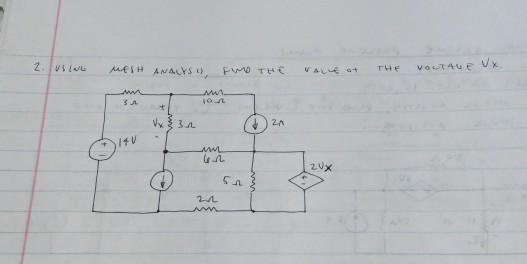 2. USING MESH ANALYSIS, FIND THE VALUE OF THE VOLTAGE Vx.
3Ω 10Ω
+
Vx 3Ω 2A
-
+ 14V
-
6Ω
5Ω + 2Vx
-
2Ω